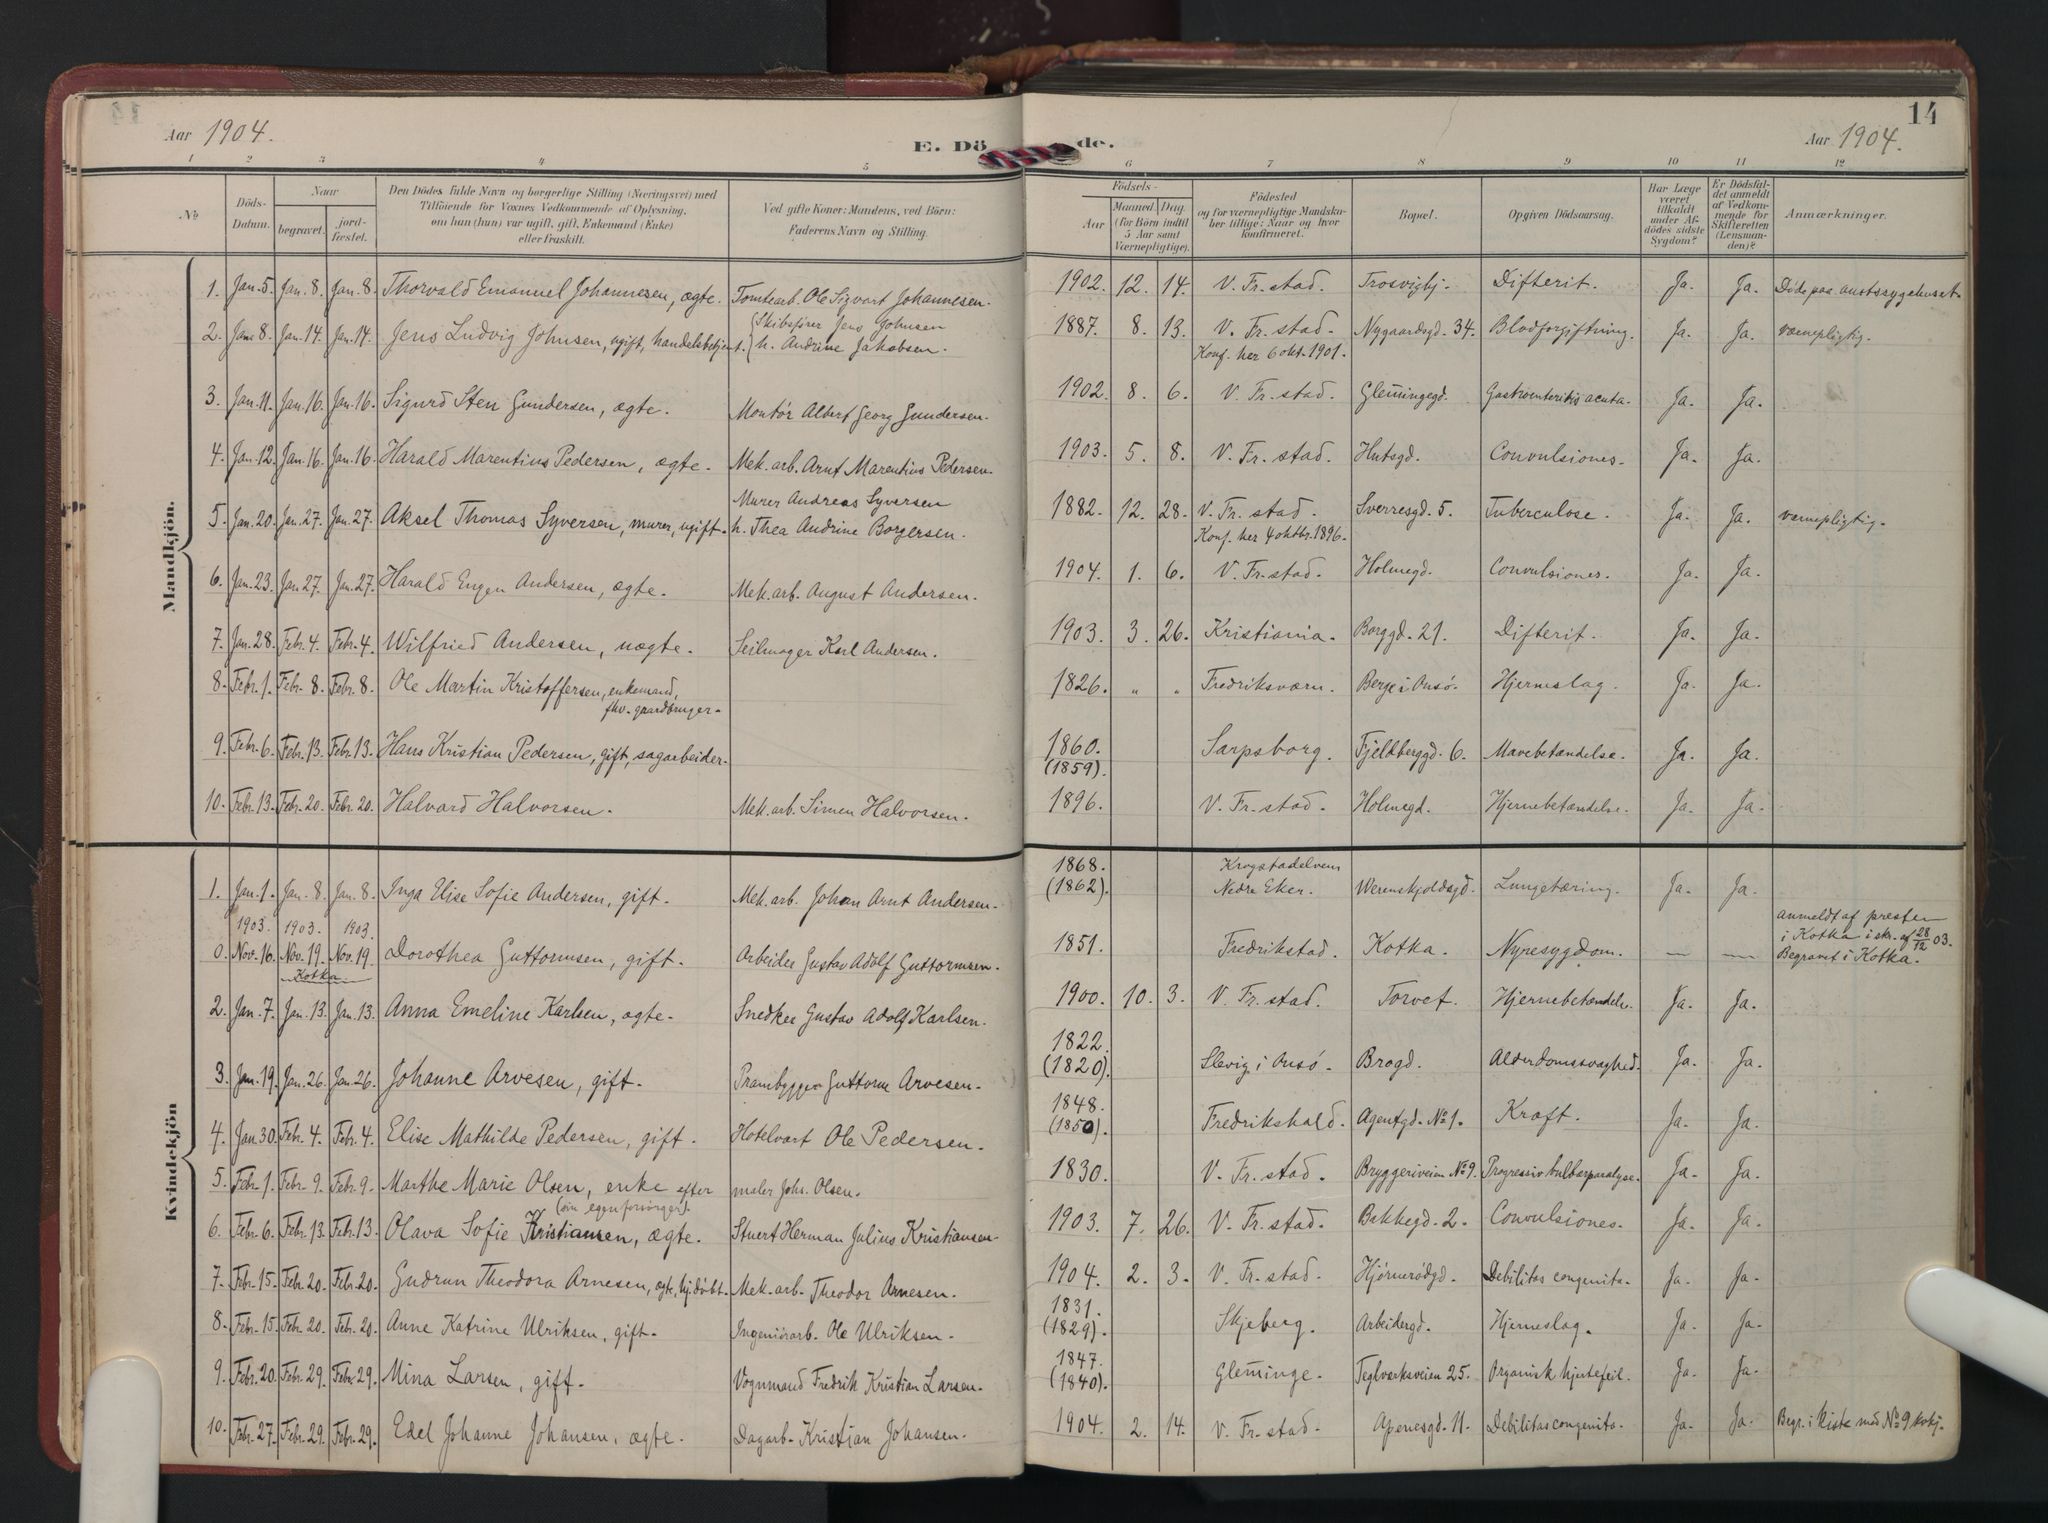 14
Aar 1904.
E. Dö de.
Aar 1904.
1 2 3 4 5 6 7 8 9 10 11 12
No
Döds-Datum.
Naar
begravet.
jord-fæstet.
Den Dödes fulde Navn og borgerlige Stilling (Næringsvei) med
Tilföiende for Voxnes Vedkommende af Oplysning,
om han (hun) var ugift, gift, Enkemand (Enke)
eller fraskilt.
Ved gifte Koner: Mandens, ved Börn:
Faderens Navn og Stilling.
Födsels-
Aar
Maaned. Dag.
(for Börn indtil
5 Aar samt
Værnepligtige).
Födested
og for værnepligtige Mandska-
ber tillige: Naar og hvor
konfirmeret.
Bopæl.
Opgiven Dödsaarsag.
Har Læge
været
tilkaldt
under Af-
dödes sidste
Sygdom?
Er Dödsfal-
det anmeldt
af Vedkom-
mende for
Skifteretten
(Lensman-
den)?
Anmærkninger.
Mandkjön.
1. Jan. 5. Jan. 8. Jan. 8. Thorvald Emanuel Johannesen, ægte. Tomtearb. Ole Sigvart Johannesen. 1902. 12. 14. V. Fr.stad. Trosvigbj. Difterit. Ja. Ja. Döde paa Amtssygehuset.
2. Jan. 8. Jan. 14. Jan. 14. Jens Ludvig Johnsen, ugift, handelsbetjent. Skibsfører Jens Johnsen 1887. 8. 13. V. Fr.stad. Nygaardsgd. 34. Blodforgiftning. Ja. Ja. værnepligtig.
h. Andrine Jakobsen. Konf. her 6 okt. 1901.
3. Jan. 11. Jan. 16. Jan. 16. Sigurd Sten Gundersen, ægte. Montör Albert Georg Gundersen. 1902. 8. 6. V. Fr.stad. Gleminegegd. Gastroenteritis acuta. Ja. Ja.
4. Jan. 12. Jan. 16. Jan. 16. Harald Marentius Pedersen, ægte. Mek. arb. Arnt Marentius Pedersen. 1903. 5. 8. V. Fr.stad. Hutsgd. Convulsiones. Ja. Ja.
Murer Andreas Syversen
5. Jan. 20. Jan. 27. Jan. 27. Aksel Thomas Syversen, murer, ugift. h. Thea Andrine Borgersen. 1882. 12. 28. V. Fr.stad. Sverresgd. 5. Tuberculose. Ja. Ja. værnepligtig.
Konf. her 4 oktbr. 1896.
6. Jan. 23. Jan. 27. Jan. 27. Harald Eugen Andersen, ægte. Mek. arb. August Andersen. 1904. 1. 6. V. Fr.stad. Holmegd. Convulsiones. Ja. Ja.
7. Jan. 28. Feb. 4. Feb. 4. Wilfried Andersen, uægte. Seilmager Karl Andersen. 1903. 3. 26. Kristiania. Borggd. 21. Difterit. Ja. Ja.
8. Febr. 1. Febr. 8. Febr. 8. Ole Martin Kristoffersen, enkemand, 1826. " " Fredriksværn. Berge i Onsö. Hjerneslag. Ja. Ja.
fhv. gaardbruger.
9. Febr. 6. Febr. 13. Febr. 13. Hans Kristian Pedersen, gift, sagarbeider. 1860. (1859). Sarpsborg. Fjeldberggd. 6. Mavebetændelse. Ja. Ja.
10. Febr. 13. Febr. 20. Febr. 20. Halvard Halvorsen. Mek. arb. Simen Halvorsen. 1896. V. Fr.stad. Holmegd. Hjernebetændelse. Ja. Ja.
Kvindekjön
1. Jan. 1. Jan. 8. Jan. 8. Inga Elise Sofie Andersen, gift. Mek. arb. Johan Arnt Andersen. 1868. (1862). Krogstadelven Nedre Eker. Werenskjoldsgd. Lungetæring. Ja. Ja.
1903. 1903. 1903.
0. Nov. 16. Nov. 19. Nov. 19. Dorothea Guttormsen, gift. Arbeider Gustav Adolf Guttormsen. 1851. Fredrikstad. Kotka. Nyresygdom. — — anmeldt af presten
i Kotka i skr. af 28/12 03.
Begravet i Kotka.
Kotka
2. Jan. 7. Jan. 13. Jan. 13. Anna Emeline Karlsen, ægte. Snedker Gustav Adolf Karlsen. 1900. 10. 3. V. Fr.stad. Torvet. Hjernebetændelse. Ja. Ja.
3. Jan. 19. Jan. 26. Jan. 26. Johanne Arvesen, gift. Prambygger Guttorm Arvesen. 1822. (1820). Slevig i Onsö. Brogd. Alderdomssvaghed. Ja. Ja.
4. Jan. 30. Feb. 4. Feb. 4. Elise Mathilde Pedersen, gift. Hotelvært Ole Pedersen. 1848. (1850). Fredrikshald. Agentgd. No 1. Kræft. Ja. Ja.
5. Febr. 1. Febr. 9. Febr. 9. Marthe Marie Olsen, enke efter maler Johs. Olsen. 1830. V. Fr.stad. Bryggeriveien No 9. Progressiv bulbærparalyse. Ja. Ja.
(sin egen forsörger).
6. Febr. 6. Febr. 13. Febr. 13. Olava Sofie Kristiansen, ægte. Stuert Herman Julius Kristiansen. 1903. 7. 26. V. Fr.stad. Bakkegd. 2. Convulsiones. Ja. Ja.
7. Febr. 15. Febr. 20. Febr. 20. Gudrun Theodora Arnesen, ægte, hj.döbt. Mek. arb. Theodor Arnesen. 1904. 2. 3. V. Fr.stad. Hjørnerödgd. Debilitas congenita. Ja. Ja.
8. Febr. 15. Febr. 20. Febr. 20. Anne Katrine Ulriksen, gift. Ingeniörarb. Ole Ulriksen. 1831. (1829). Skjeberg. Arbeidergd. Hjerneslag. Ja. Ja.
9. Febr. 20. Febr. 29. Febr. 29. Mina Larsen, gift. Vognmand Fredrik Kristian Larsen. 1847. (1840). Gleminge. Teglværksveien 25. Organisk hjertefeil. Ja. Ja.
10. Febr. 27. Febr. 29. Febr. 29. Edel Johanne Johansen, ægte. Dagarb. Kristian Johansen. 1904. 2. 14. V. Fr.stad. Apenesgd. 11. Debilitas congenita. Ja. Ja. Begr. i kiste med No 9 kvkj.